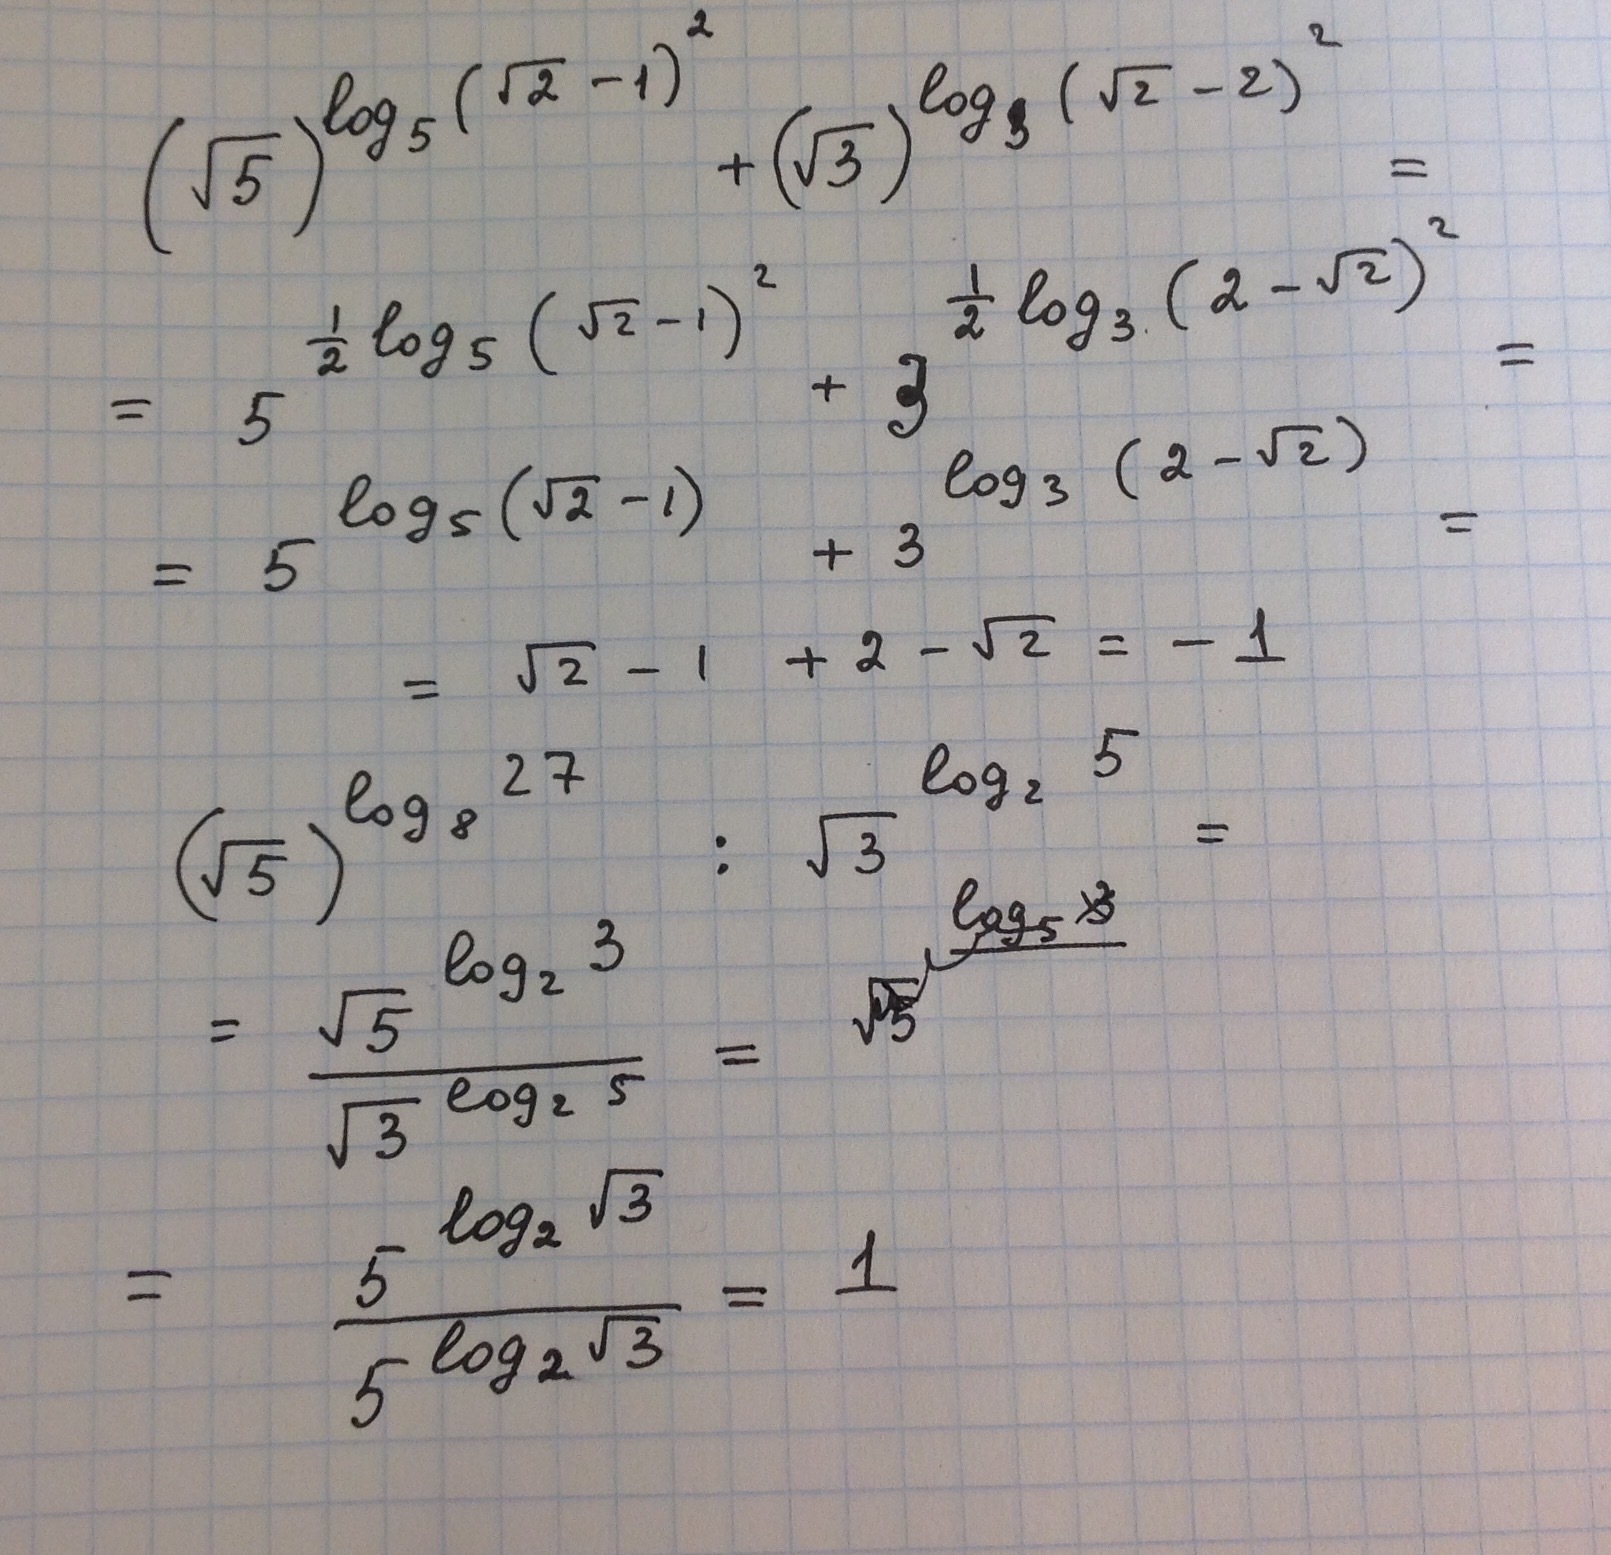 (√5)^{log₅(√2 − 1)²} + (√3)^{log₃(√2 − 2)²} =
= 5^{½ log₅(√2 − 1)²} + 3^{½ log₃(2 − √2)²} =
= 5^{log₅(√2 − 1)} + 3^{log₃(2 − √2)} =
= √2 − 1 + 2 − √2 = − 1
(√5)^{log₈ 27} : √3^{log₂ 5} =
= √5^{log₂ 3} / √3^{log₂ 5} =
= 5^{log₂ √3} / 5^{log₂ √3} = 1